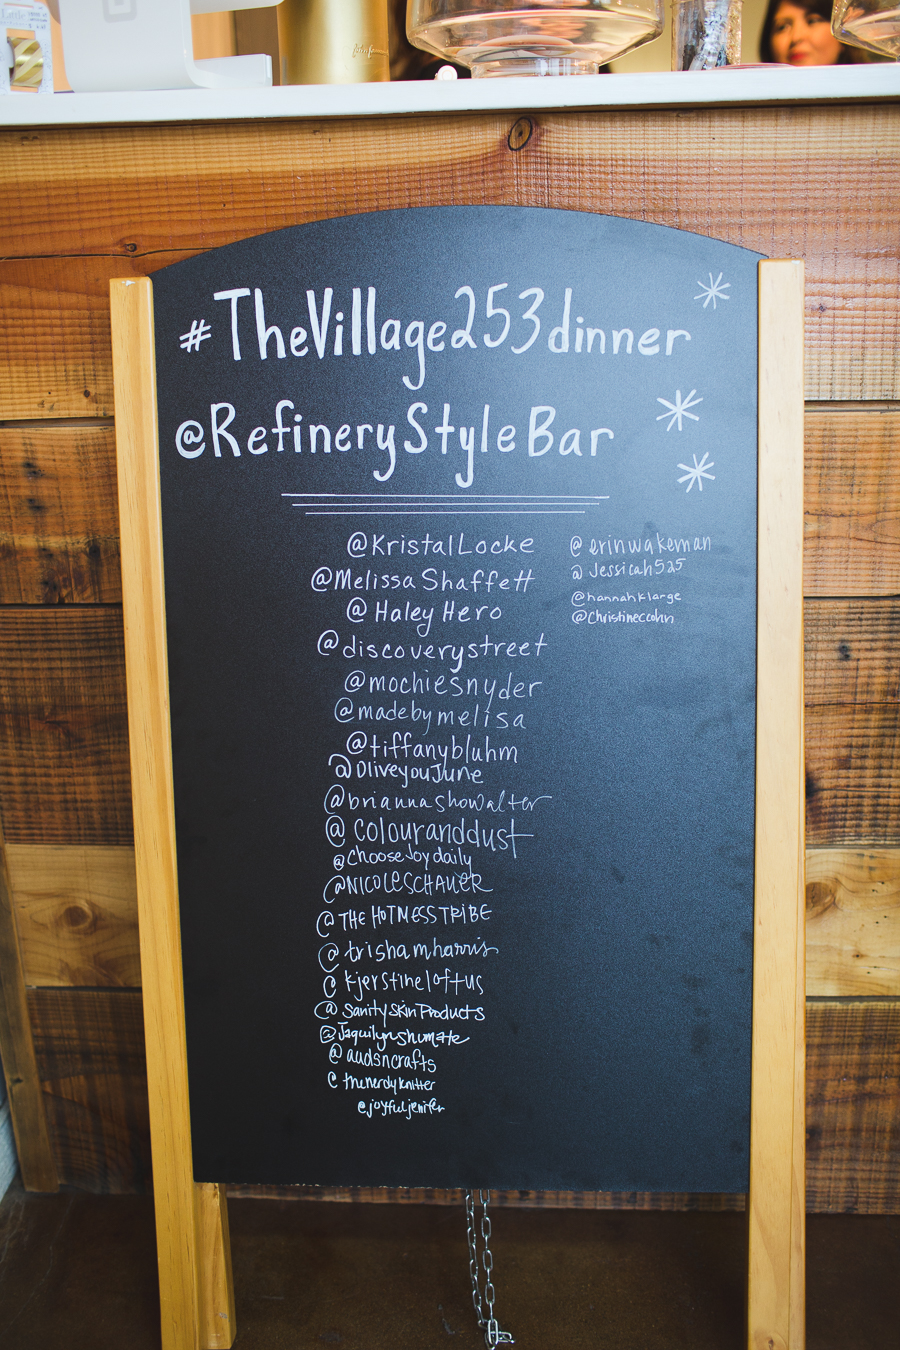 #TheVillage253dinner
@RefineryStyleBar
@KristalLocke
@MelissaShaffett
@HaleyHero
@discoverystreet
@mochiesnyder
@madebymelisa
@tiffanybluhm
@OliveyouJune
@briannashowalter
@colouranddust
@choosejoydaily
@NICOLESCHAUER
@THEHOTMESSTRIBE
@trishamharris
@kjerstineloftus
@SanitySkinProducts
@Jaquilynshumate
@audsncrafts
@thenerdyknitter
@joyfuljenifer
@erinwakeman
@Jessicah525
@hannahklarge
@Christineccohn